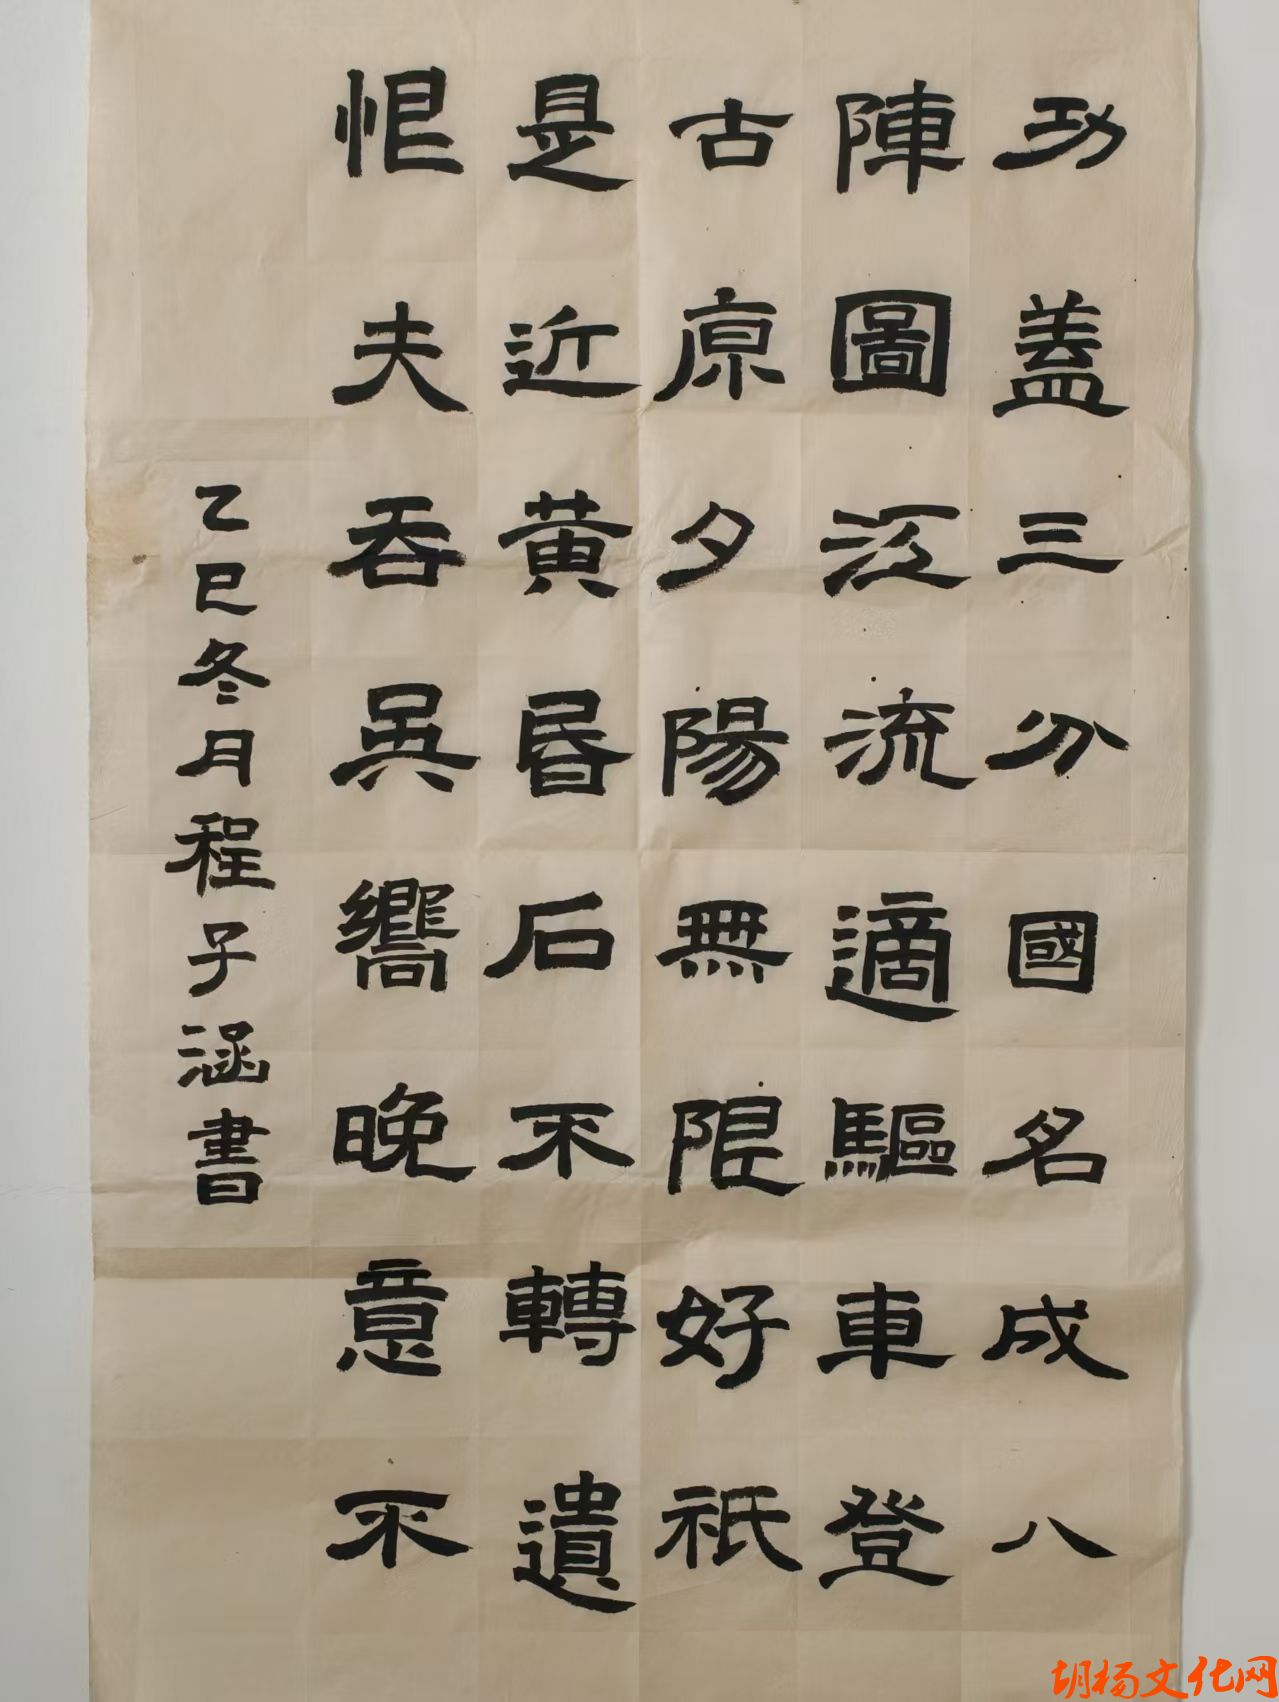 功蓋三分國名成八
陣圖江流適驅車登
古原夕陽無限好祇
是近黄昏石不轉遺
恨夫吞吳嚮晚意不
乙巳冬月程子涵書
胡杨文化网